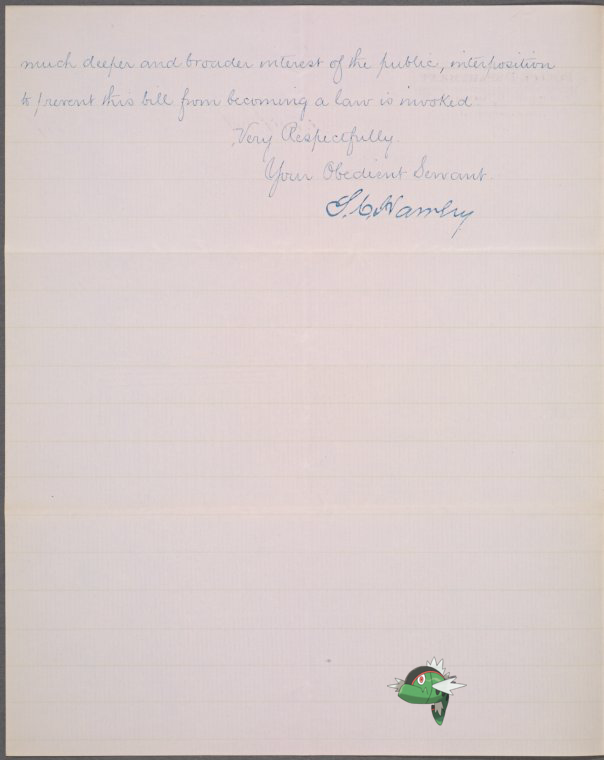 much deeper and broader interest of the public, interposition
to prevent this bill from becoming a law is invoked
Very Respectfully.
Your Obedient Servant.
S. C.